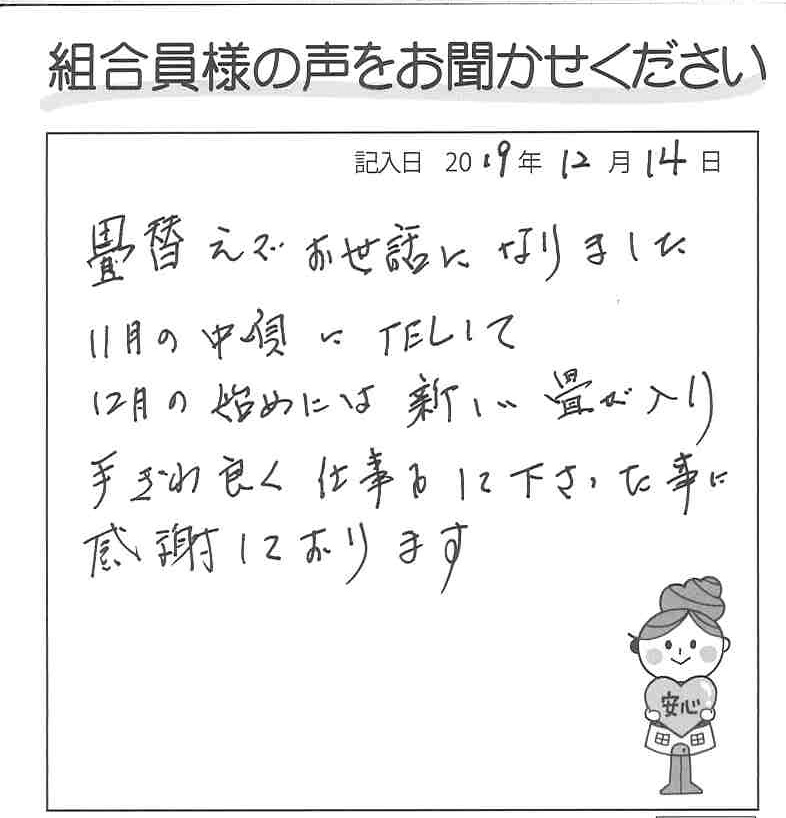 組合員様の声をお聞かせください
記入日 2019年 12月 14日
畳替えでお世話になりました
11月の中頃にTELして
12月の始めには新しい畳が入り
手ぎわ良く仕事をして下さった事に
感謝しております
安心